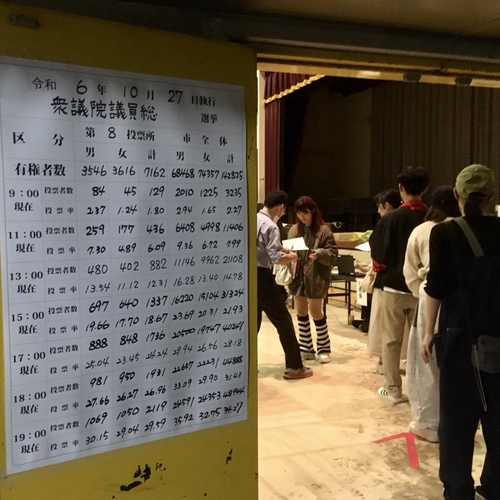 令和 6 年 10 月 27 日執行
衆議院議員総選挙
区分 第 8 投票所 市全体
男 女 計 男 女 計
有権者数 3546 3616 7162 68468 74357 142825
9：00 投票者数 84 45 129 2010 1225 3235
現在 投票率 2.37 1.24 1.80 2.94 1.65 2.27
11：00 投票者数 259 177 436 6408 4998 11406
現在 投票率 7.30 4.89 6.09 9.36 6.72 7.99
13：00 投票者数 480 402 882 11146 9962 21108
現在 投票率 13.54 11.12 12.31 16.28 13.40 14.78
15：00 投票者数 697 640 1337 16220 15104 31324
現在 投票率 19.66 17.70 18.67 23.69 20.31 21.93
17：00 投票者数 888 848 1736 20500 19747 40247
現在 投票率 25.04 23.45 24.24 29.94 26.56 28.18
18：00 投票者数 981 950 1931 22657 22231 44888
現在 投票率 27.66 26.27 26.96 33.09 29.90 31.43
19：00 投票者数 1069 1050 2119 24591 24353 48944
現在 投票率 30.15 29.04 29.59 35.92 32.75 34.27